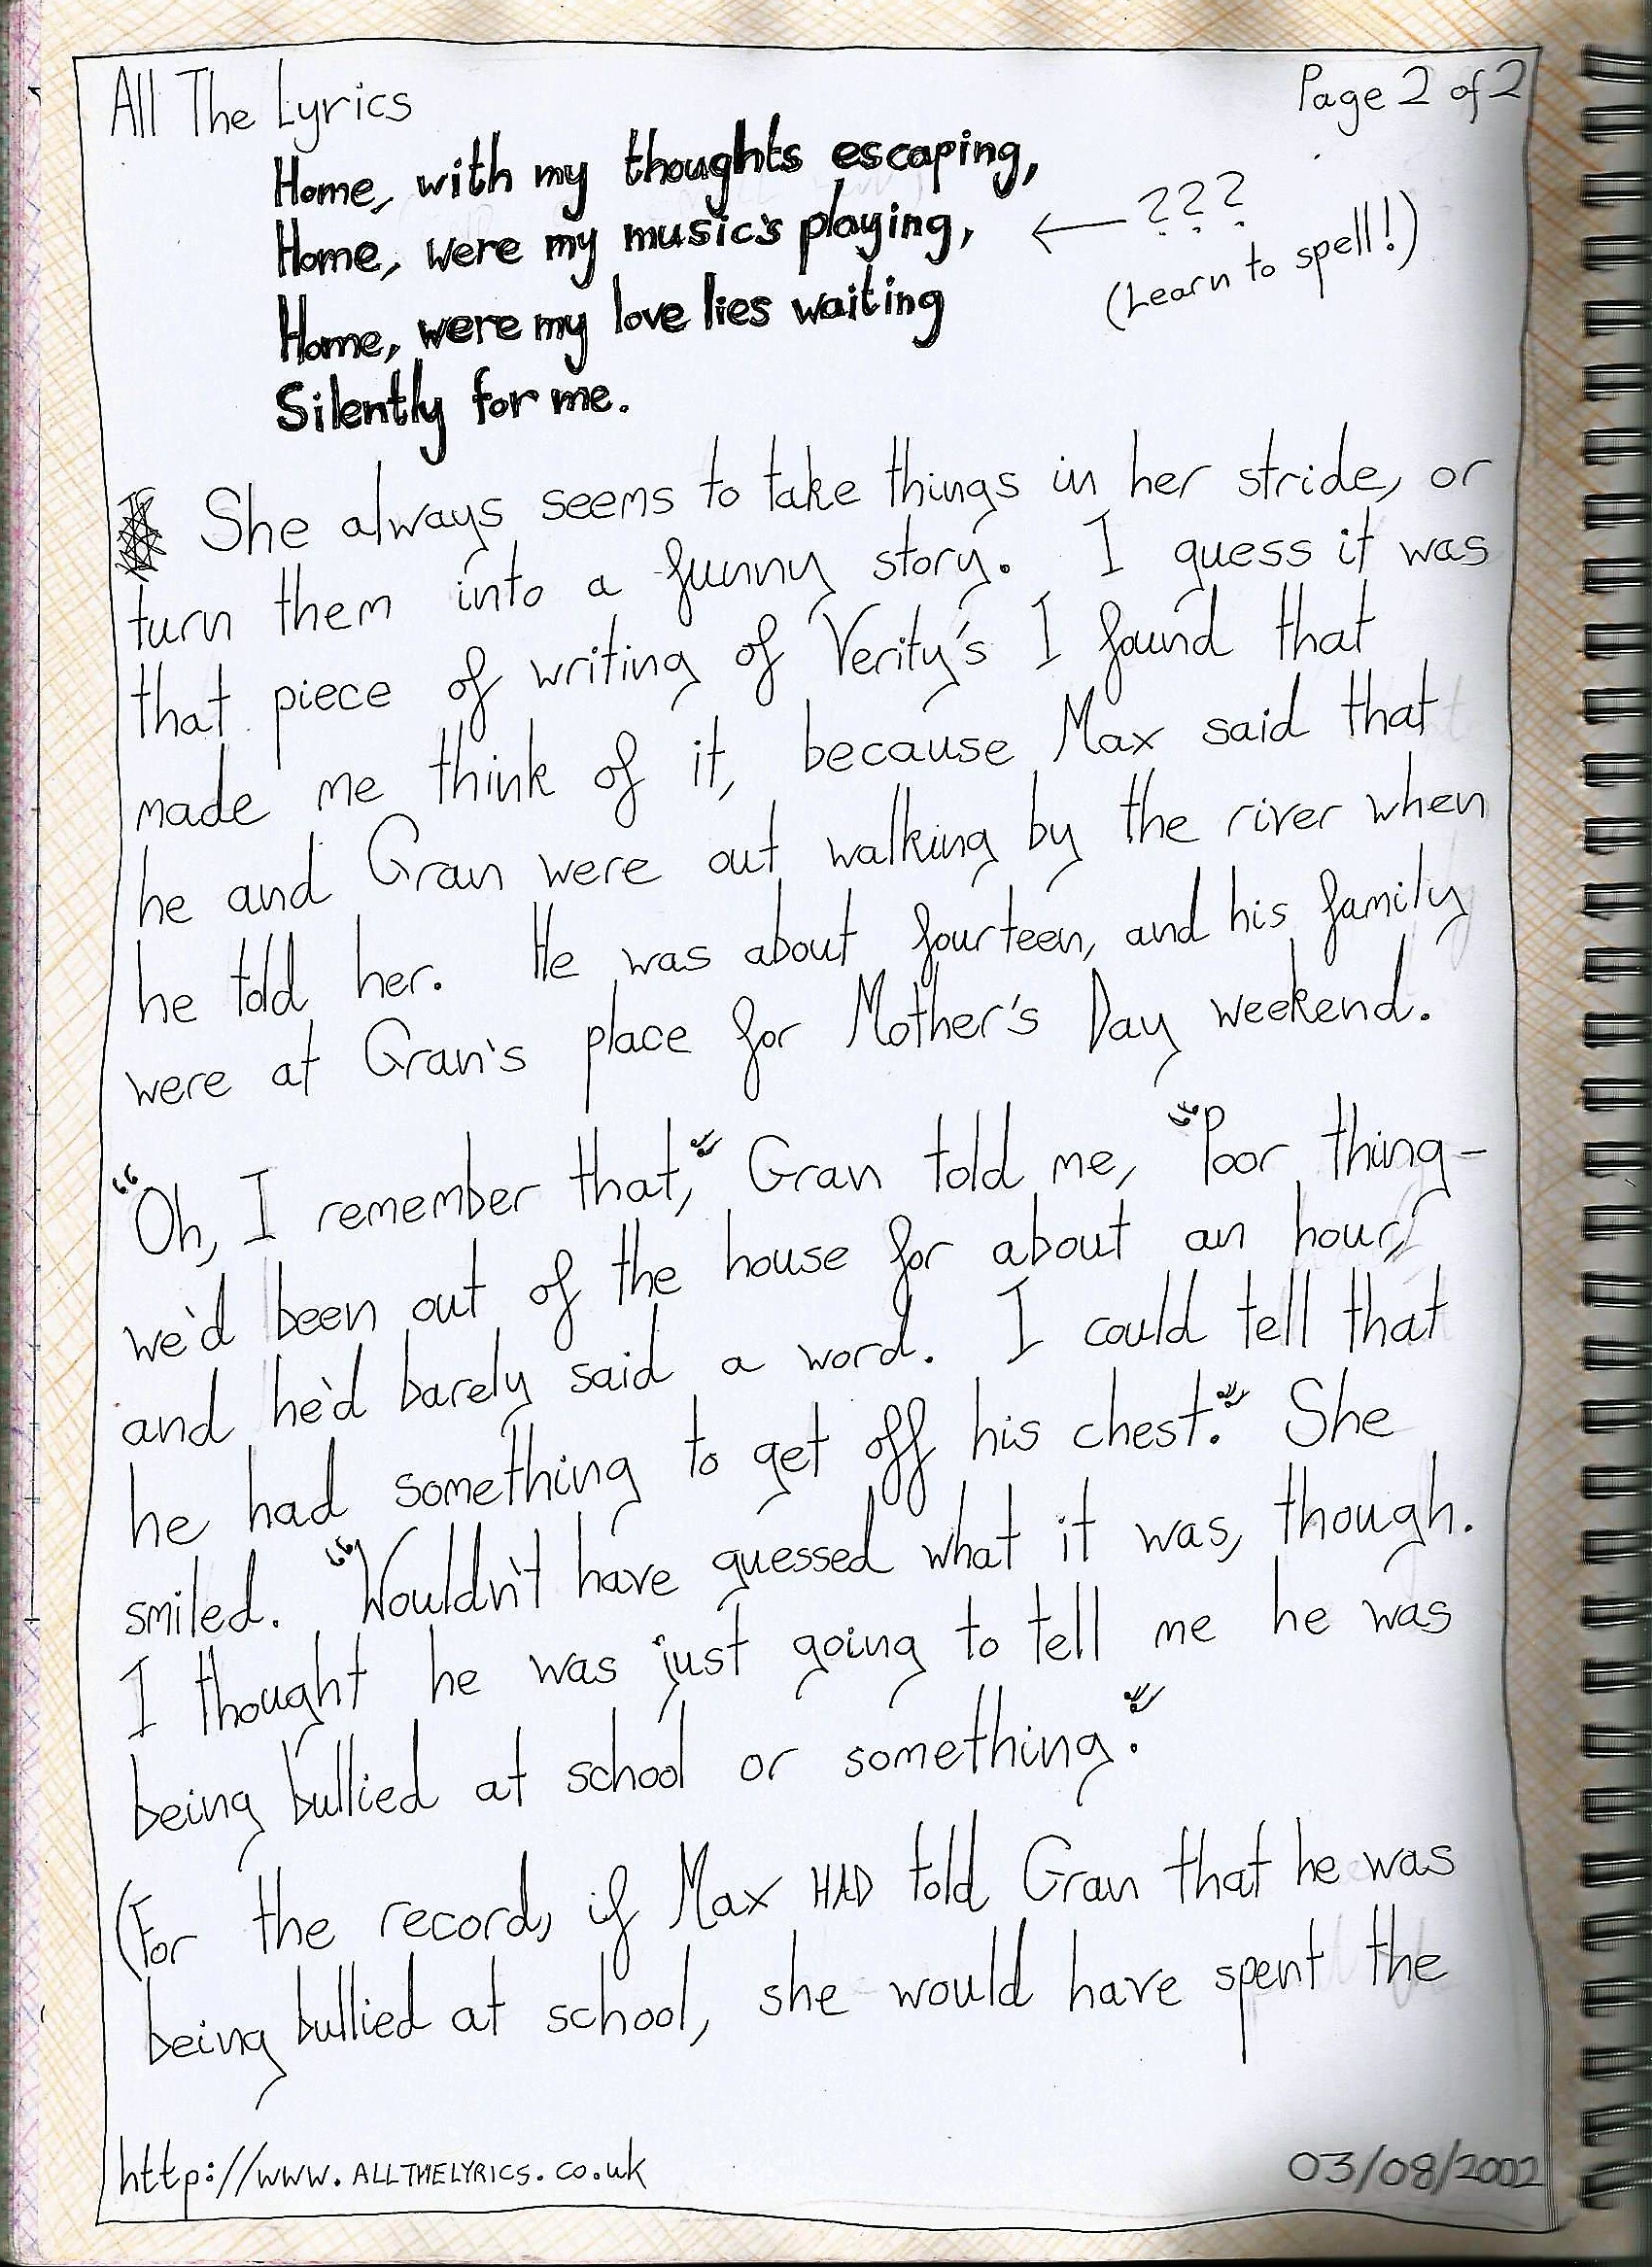 All The Lyrics
Page 2 of 2
Home, with my thoughts escaping,
Home, were my music's playing,
← ???
(Learn to spell!)
Home, were my love lies waiting
Silently for me.
She always seems to take things in her stride, or
turn them into a funny story. I guess it was
that piece of writing of Verity's I found that
made me think of it, because Max said that
he and Gran were out walking by the river when
he told her. He was about fourteen, and his family
were at Gran's place for Mother's Day weekend.
"Oh, I remember that," Gran told me, "Poor thing -
we'd been out of the house for about an hour,
and he'd barely said a word. I could tell that
he had something to get off his chest." She
smiled. "Wouldn't have guessed what it was, though.
I thought he was just going to tell me he was
being bullied at school or something."
(For the record, if Max HAD told Gran that he was
being bullied at school, she would have spent the
http://www.ALLTHELYRICS.co.uk
03/08/2002